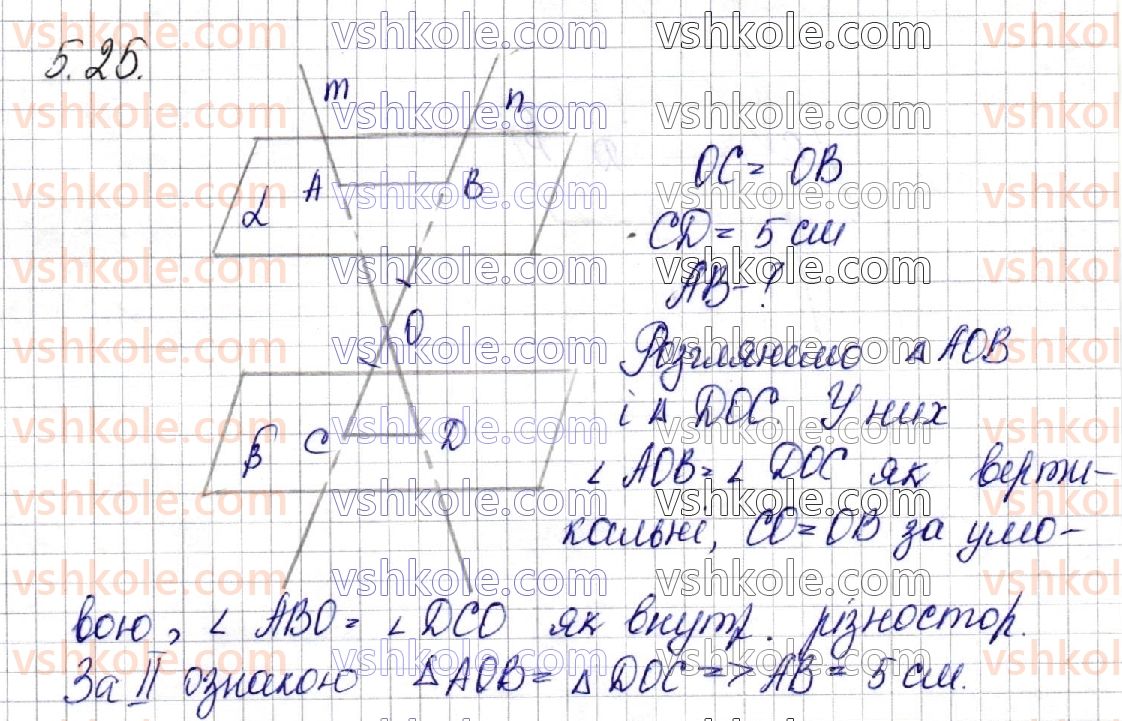 5.25.
m
n
A
B
α
O
C
D
β
OC = OB
CD = 5 см
AB - ?
Розглянемо △ AOB
і △ DOC. У них
∠ AOB = ∠ DOC як верти-
кальні, CO = OB за умо-
вою, ∠ ABO = ∠ DCO як внутр. різностор.
За II ознакою △ AOB = △ DOC => AB = 5 см.
vshkole.com